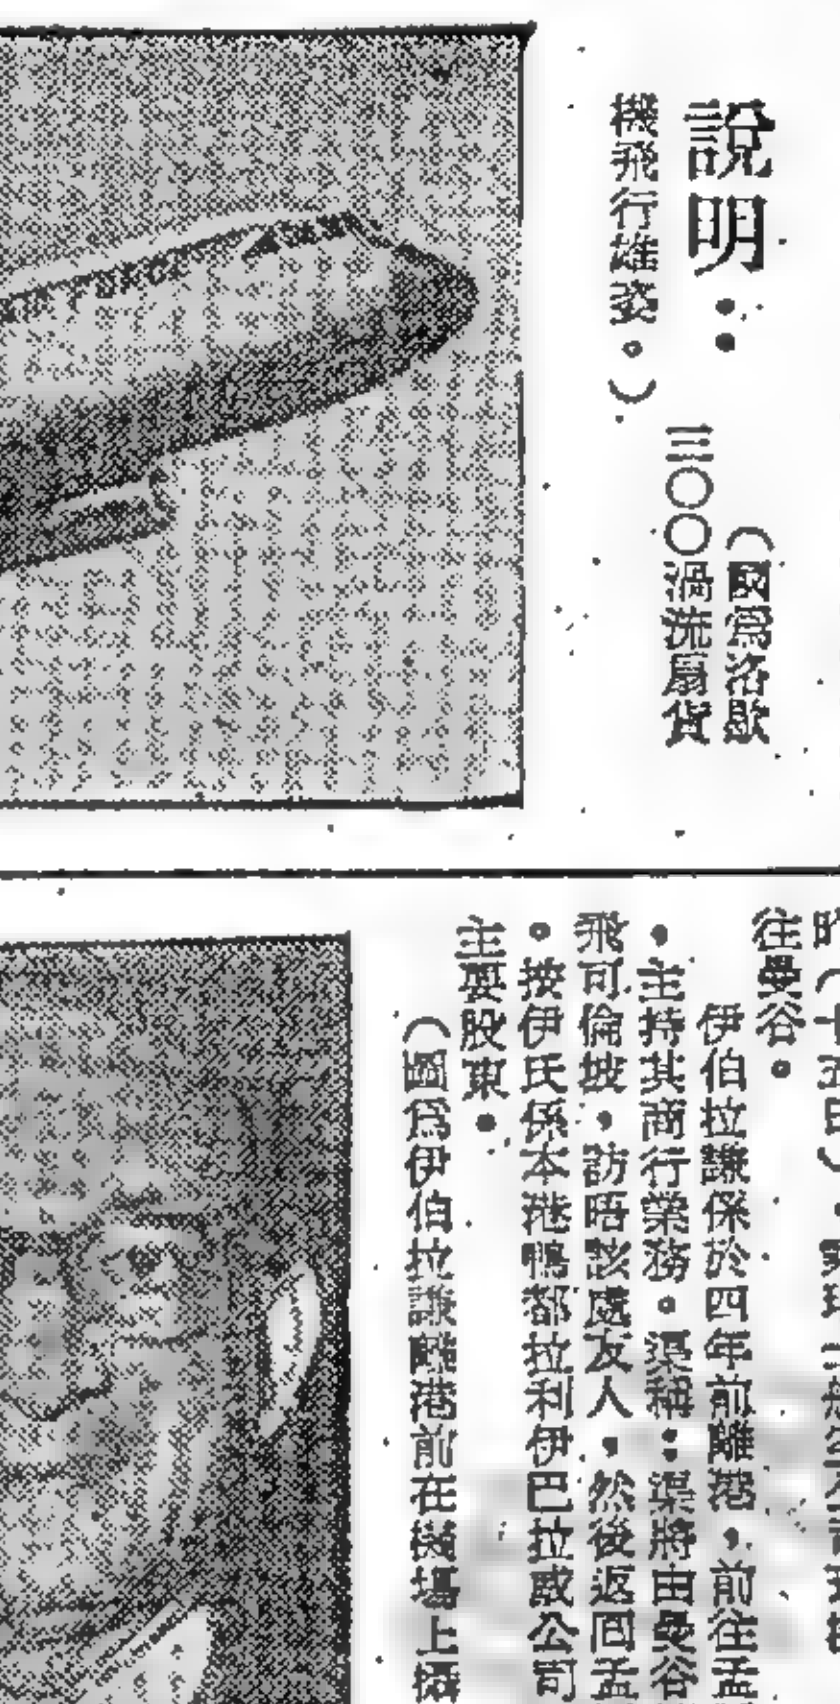 說明：
（圖為洛歇
三〇〇渦流扇貨
機飛行雄姿。）
昨（十五日），
往曼谷。
伊伯拉謙係於四年前離港，前往孟
，主持其商行業務。渠稱：渠將由曼谷
飛可倫坡，訪晤該處友人，然後返回孟
。按伊氏係本港鴨都拉利伊巴拉謙公司
主要股東。
（圖為伊伯拉謙離港前在機場上攝